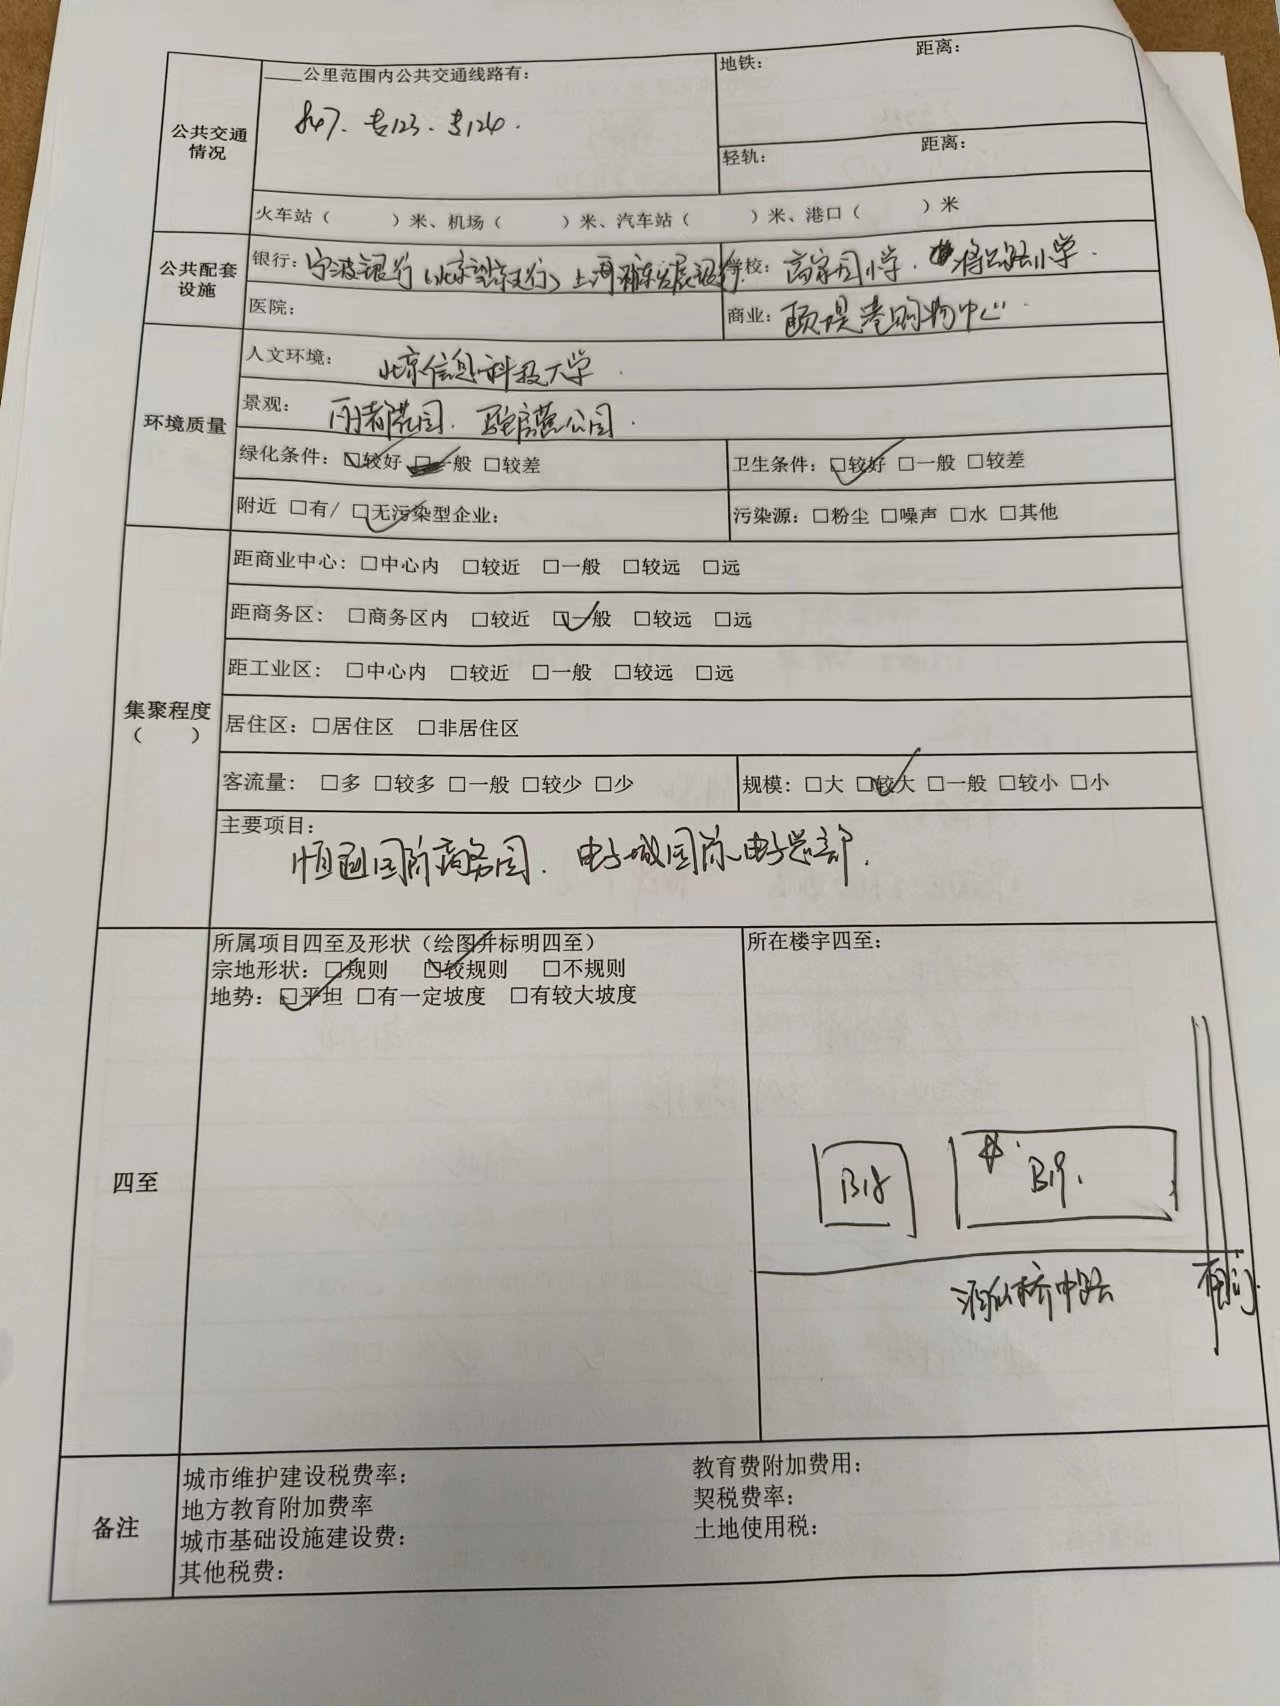 ____公里范围内公共交通线路有：
地铁：
距离：
847. 专123. 专124.
公共交通情况
轻轨：
距离：
火车站（　　）米、机场（　　）米、汽车站（　　）米、港口（　　）米
公共配套设施
银行：宁波银行（北京望京支行）上海浦东发展银行.
学校：高家园小学. 将台路小学.
医院：
商业：颐堤港购物中心
环境质量
人文环境：北京信息科技大学
景观：丽都花园. 驼房营公园.
绿化条件：☑较好 □一般 □较差
卫生条件：☑较好 □一般 □较差
附近 □有/ ☑无污染型企业：
污染源：□粉尘 □噪声 □水 □其他
集聚程度（　　）
距商业中心：□中心内 □较近 □一般 □较远 □远
距商务区：□商务区内 □较近 ☑一般 □较远 □远
距工业区：□中心内 □较近 □一般 □较远 □远
居住区：□居住区 □非居住区
客流量：□多 □较多 □一般 □较少 □少
规模：□大 ☑较大 □一般 □较小 □小
主要项目：
恒通国际商务园. 电子城国际电子总部.
四至
所属项目四至及形状（绘图并标明四至）
宗地形状：☑规则 ☑较规则 □不规则
地势：☑平坦 □有一定坡度 □有较大坡度
所在楼宇四至：
B18
B19.
酒仙桥中路
备注
城市维护建设税费率：
教育费附加费用：
地方教育附加费率
契税费率：
城市基础设施建设费：
土地使用税：
其他税费：